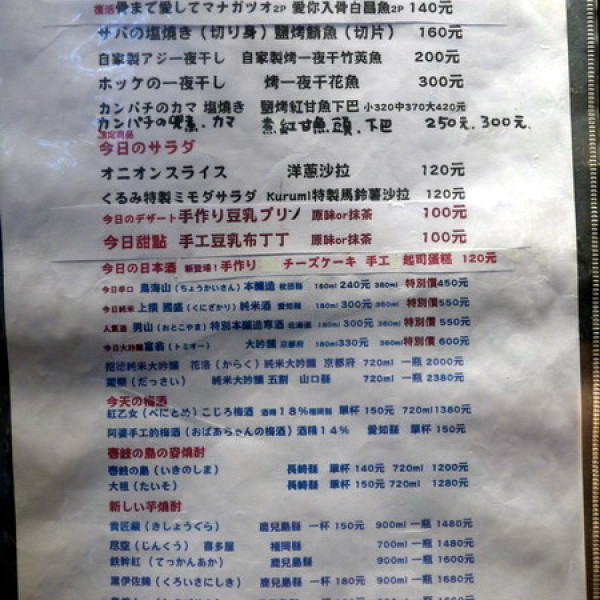 復活 骨まで愛してマナガツオ2P 愛你入骨白昌魚2P 140元
サバの塩焼き（切り身）鹽烤鯖魚（切片） 160元
自家製アジ一夜干し 自家製烤一夜干竹莢魚 200元
ホッケの一夜干し 烤一夜干花魚 300元
カンパチのカマ 塩焼き 鹽烤紅甘魚下巴 小320中370大420元
カンパチの兜煮．カマ 煮紅甘魚．頭．下巴 250元．300元
限定商品
今日のサラダ
オニオンスライス 洋蔥沙拉 120元
くるみ特製ミモダサラダ Kurumi特製馬鈴薯沙拉 120元
今日のデザート 手作り豆乳プリン 原味or抹茶 100元
今日甜點 手工豆乳布丁丁 原味or抹茶 100元
今日の日本酒 新登場！手作り チーズケーキ 手工 起司蛋糕 120元
今日辛口 鳥海山（ちょうかいさん）本釀造 秋田縣 180ml 240元 360ml 特別價450元
今日純米 上撰 國盛（くにざかり）純米酒 愛知縣 180ml 300元 360ml 特別價550元
人氣酒 男山（おとこやま）特別本釀造寒酒 北海道 180ml 300元 360ml 特別價 550元
今日大吟釀 富翁（トミオー） 大吟釀 京都府 180ml330元 360ml特別價 600元
純米大吟釀 花洛（からく）純米大吟釀 京都府 720ml 一瓶 2000元
獺祭（だっさい） 純米大吟釀 五割 山口縣 720ml 一瓶 2380元
今天の梅酒
紅乙女（べにとめ）こじろ梅酒 酒精18%福岡縣 單杯 150元 720ml1380元
阿婆手工的梅酒（おばあちゃんの梅酒）酒精14% 愛知縣 單杯 150元
壱岐の島の麥燒酎
壱岐の島（いきのしま） 長崎縣 單杯 140元 720ml 1200元
大祖（たいそ） 長崎縣 單杯 150元 720ml 1280元
新しい芋燒酎
貴匠蔵（きしょうぐら） 鹿兒島縣 一杯 150元 900ml 一瓶 1480元
尽空（じんくう） 喜多屋 福岡縣 700ml 一瓶 1480元
鉄幹紅（てっかんあか） 鹿兒島縣 900ml 一瓶 1600元
黒伊佐錦（くろいさにしき） 鹿兒島縣 一杯 180元 900ml 一瓶 1680元